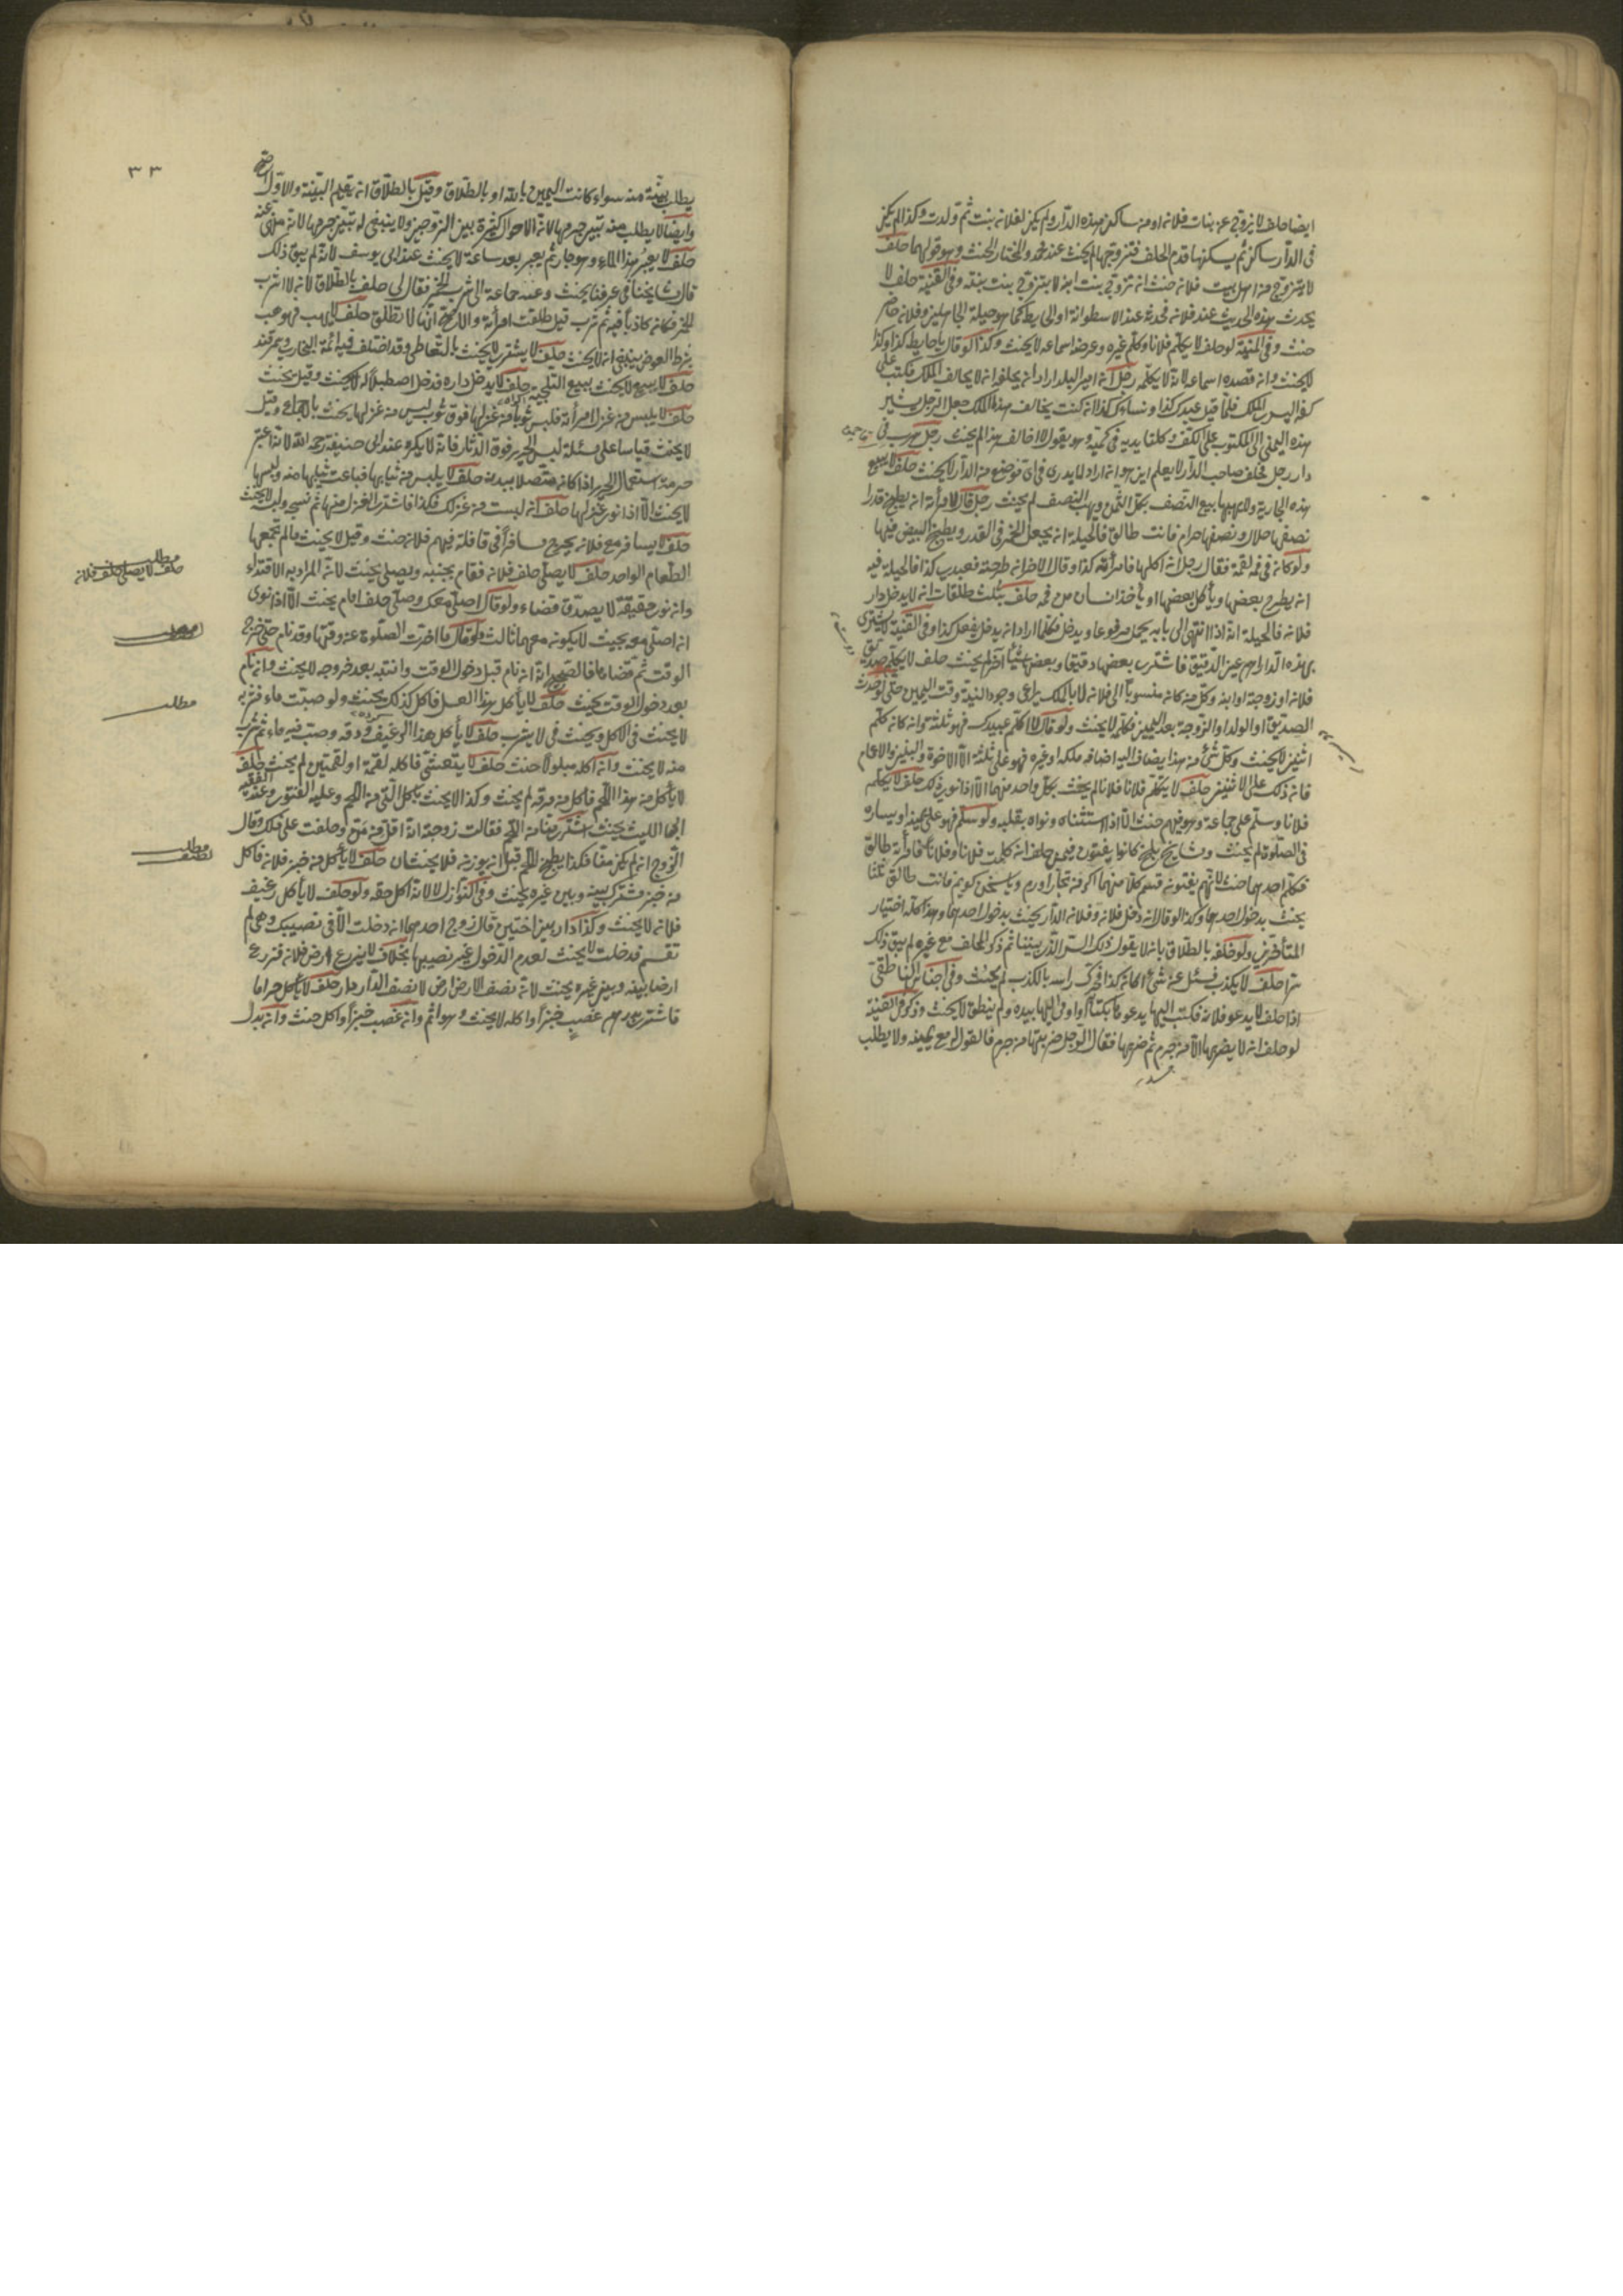 ايضا حلف لا يزوج من بنات فلان او من ساكن هذه الدار ولم يكن لفلان بنت ثم ولدت وكذا لم يكن
في الدار ساكن ثم يسكنها قدم الحلف فتزوجها لم يحنث عند محمد والمختار الحنث وهو قولهما حلف
لا يتزوج من اهل بيت فلان حنث ان تزوج بنت ابنه لا بتزوج بنت بنته وفي القنية حلف لا
يحدث هذه الحديث عند فلان فحدثه عند الاسطوانة او الحايط كما هو حيلة وفلان حاضر
حنث وفي المنية لو حلف لا يكلم فلانا وكلم غيره وعرضه اسماعه لا يحنث وكذا لو قال يا حايط كذا وكذا
لا يحنث وان قصده اسماعه لانه لا يكلمه رجل امير البلد اراد ان يحلفه انه لا يخالف الملك فكتب على
كفه اليسرى الملك فلما قيل عبيدك كذا ونساؤك كذا ان كنت يخالف هذا الملك جعل الرجل يشير
هذه اليمنى الى المكتوب على الكف وكلتا يديه في كميه وهو يقول لا اخالف هذا لم يحنث رجل هرب في
دار رجل فحلف صاحب الدار لا يعلم اين هو ان اراد لا يدري في اي موضع من الدار لا يحنث حلف لا يبيع
هذه الجارية ولا يهبها يبيع النصف بكل الثمن ويهب النصف لم يحنث رجل قال لامرأته ان يطبخ قدرا
نصفها حلال ونصفها حرام فانت طالق فالحيلة ان يجعل الخمر في القدر ويطبخ البيض فيها
ولو كان في فمه لقمة فقال رجل ان اكلها فامرأته كذا وقال الاخر ان طرحته فعبدي كذا فالحيلة فيه
ان يطرح بعضها ويأكل بعضها او يأخذ انسان من فمه حلف بثلث طلقات ان لا يدخل دار
فلان فالحيلة انه اذا انتهى الى بابه يحمل مرفوعا ويدخل فكلما اراد ان يدخل يفعل كذا وفي القنية لا يشتري
بهذه الدراهم غير الدقيق فاشترى ببعضها دقيقا وببعضها شيئا آخر لم يحنث حلف لا يكلم صديق
فلان او زوجة او ابنه وكل من كان منسوبا الى فلان لا بالملك يراعى وجود النية وقت اليمين حتى لو احدث
الصديق او الولد او الزوجة بعد اليمين فكلمه لا يحنث ولو قال لا اكلم عبيدك فهو ثلثة وان كان كلم
اثنين لا يحنث وكل شئ من هذا يضاف اليه اضافة ملكه او غيره فهو على ثلثة الا الاخوة والبنين والاعمام
فان ذلك على الاثنين حلف لا يكلم فلانا فلانا لم يحنث بكل واحد منهما الا اذا نوى ذلك حلف لا يكلم
فلانا وسلم على جماعة وهو فيهم حنث الا اذا استثناه ونواه بقلبه ولو سلم فهو على يمينه او يساره
في الصلوة لم يحنث ومشايخ بلخ كانوا يفتون فيمن حلف ان كلمت فلانا وفلانا فامرأته طالق
فكلم احدهما حنث لانهم يفتون قسم كلا منهما
يحنث بدخول احدهما وكذا لو قال ان دخل فلان وفلان الدار يحنث بدخول احدهما وهذا كله اختيار
المتأخرين ولو حلفه بالطلاق بان لا يقول ذلك السر الذي بيننا ثم ذكر الحالف مع غيره لم يبق ذلك
سرا حلف لا يكذب فسئل عن شئ اكان كذا فحرك راسه بالكذب لم يحنث وفي اجناس الناطفي
اذا حلف لا يدعو فلان فكتب اليها يدعو بكتاب او اومى اليها بيده ولم ينطق لا يحنث وذكر في القنية
لو حلف انه لا يضربها الا من جرم ثم ضربها فقال الرجل ضربتها من جرم فالقول له مع يمينه ولا يطلب
٣٣
يطلب بينة منه سواء كانت اليمين بالله او بالطلاق وقيل بالطلاق انه يقيم البينة والاول اصح
وايضا لا يطلب منه تبين جرمها لان الاحوال كثيرة بين الزوجين ولا ينبغي له تبين جرمها لانه منهى عنه
حلف لا يعبر هذا الماء وهو جار ثم يعبر بعد ساعة لا يحنث عند ابي يوسف لانه لم يبق ذلك
قال مشايخنا في عرفنا يحنث وعنه جماعة الى شرب الخمر فقال لي حلف بالطلاق لانه لا اشرب
الخمر فكان كاذبا فيه ثم شرب قيل طلقت امرأته والاصح انها لا تطلق حلف لا يهب فوهب
بشرط العوض ينبغي ان لا يحنث حلف لا يشتري لا يحنث بالتعاطي وقد اختلف فيه ائمة البخاري وسمرقند
حلف لا يبيع لا يحنث ببيع التلجية حلف لا يدخل داره فدخل اصطبلا له لا يحنث وقيل يحنث
حلف لا يلبس من غزل امرأته فلبس ثوبا من غزلها فوق ثوب ليس من غزلها يحنث بالاجماع وقيل
لا يحنث قياسا على مسئلة لبس الحرير فوق الدثار فانه لا يكره عند ابي حنيفة رحمه الله لانه اعتبر
حرمة استعمال الحرير اذا كان متصلا ببدنه حلف لا يلبس من ثيابها فباعت ثيابها منه ولبسها
لا يحنث الا اذا نوى غزلها حلف ان لبست من غزلك فكذا فاشترى الغزل منها ثم نسجه ولبس لا يحنث
حلف لا يسافر مع فلان يخرج مسافرا في قافلة فيهم فلان حنث وقيل لا يحنث ما لم يجمعها
الطعام الواحد حلف لا يصلي خلف فلان فقام بجنبه ويصلي يحنث لانه المراد به الاقتداء
وان نوى حقيقته لا يصدق قضاء ولو قال اصلي معك وصلى خلف امام يحنث الا اذا نوى
ان اصلي معه بحيث لا يكون معهما ثالث ولو قال ما اخرت الصلوة عن وقتها وقد نام حتى خرج
الوقت ثم قضاها فالصحيح انه ان نام قبل دخول الوقت وانتبه بعد خروجه لا يحنث وان نام
بعد دخول الوقت يحنث حلف لا يأكل هذا العسل فاكل كذلك يحنث ولو صبت ماء فشربه
لا يحنث في الاكل ويحنث في لا يشرب حلف لا يأكل هذا الرغيف ودقه وصب فيه ماء ثم شرب
منه لا يحنث وان اكله مبلولا حنث حلف لا يتعشى فاكله لقمة او لقمتين لم يحنث حلف
لا يأكل من هذا اللحم فاكل من مرقه لم يحنث وكذا لا يحنث بكل التي من اللحم وعليه الفتوى وعند الفقيه
ابي الليث يحنث اشترى منا من اللحم فقالت زوجة انه اقل من من وحلفت على ذلك وقال
الزوج ان لم يكن منا فكذا يطبخ اللحم قبل ان يوزن فلا يحنثان حلف لا يأكل من خبز فلان فاكل
من خبز مشترك بينه وبين غيره يحنث وفي النوازل لا لانه اكل حقه ولو حلف لا يأكل رغيف
فلان لا يحنث وكذا دار بين اختين قال زوج احدهما ان دخلت الا في نصيبك وهي لم
تقسم فدخلت لا يحنث لعدم الدخول غير نصيبها بخلاف لا يزرع ارض فلان فزرع
ارضا بينه وبين غيره يحنث لانه نصف الارض ارض لا نصف الدار دار حلف لا يأكل حراما
فاشترى بدرهم غصب خبزا واكله لا يحنث وهو آثم وان غصب خبزا واكل حنث وان بدل
مطلب
حلف لا يصلي خلف فلان
مطلب
مطلب
مطلب